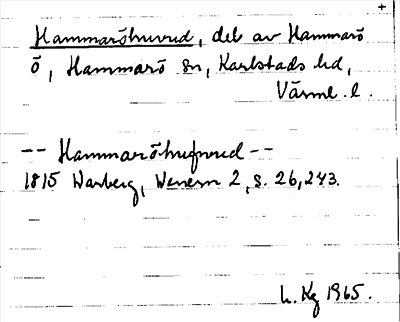 +
Hammaröhuvud, del av Hammarö
ö, Hammarö sn, Karlstads hd,
Värml. l.
-- Hammaröhufvud --
1815 Warberg, Wenern 2, s. 26, 243.
L. Kg 1965.